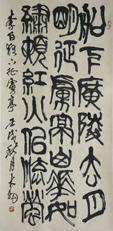 船下廣陵去月
明征虜亭山花如
繡頰江火似流螢
李白 征虜亭 月